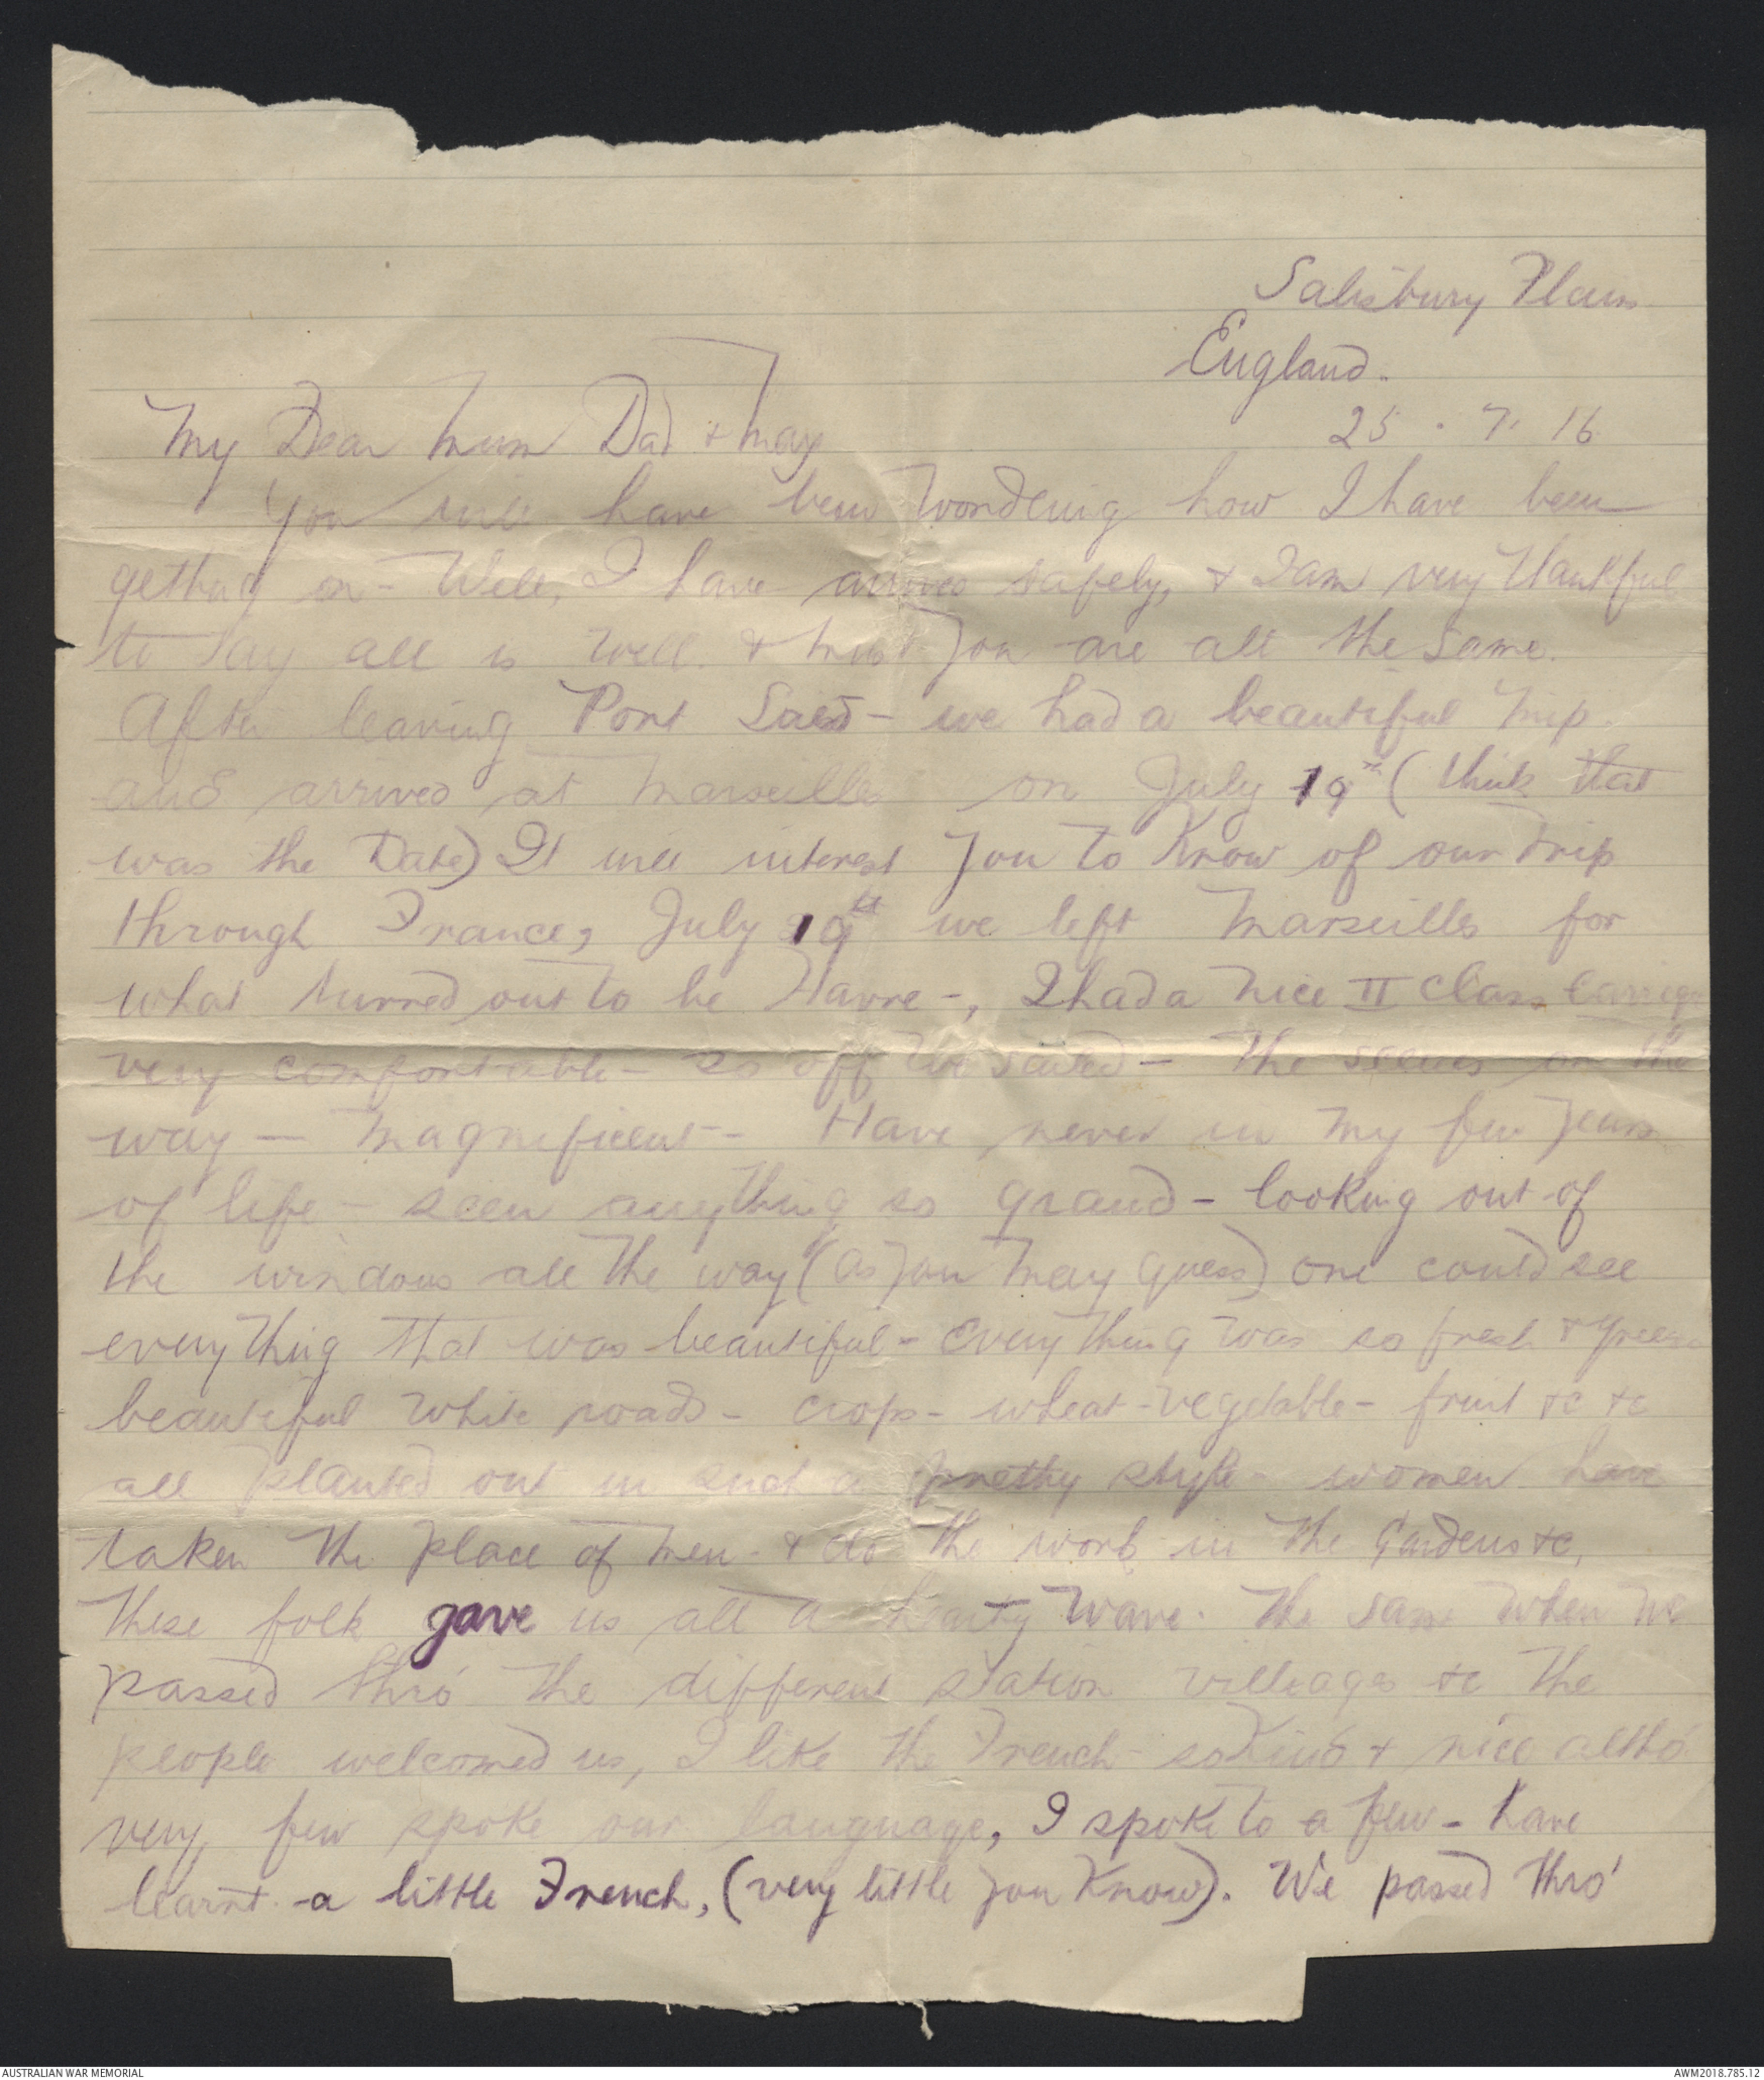 Salisbury Plain
England.
25 . 7. 16
My Dear Mum Dad & May
You will have been wondering how I have been
getting on - Well, I have arrived safely, & I am very thankful
to say all is well. & trust you are all the same.
After leaving Port Said - we had a beautiful trip.
and arrived at Marseilles on July 19th (think that
was the Date) It will interest you to know of our trip
through France, July 19th we left Marseilles for
what turned out to be Havre -, I had a nice II class carriage
very comfortable - so off we sailed - The scenes on the
way - magnificent - Have never in my few years
of life - seen anything so grand - looking out of
the windows all the way (as you may guess) one could see
everything that was beautiful - everything was so fresh & green
beautiful white roads - crops - wheat - vegetable - fruit &c &c
all planted out in such a pretty style - women have
taken the place of men - & do the work in the Gardens &c,
These folk gave us all a hearty wave. The same when we
passed thro' the different station villiages &c the
people welcomed us, I like the French - so kind & nice altho'
very few spoke our language, I spoke to a few - have
learnt - a little French, (very little you know). We passed thro'
AUSTRALIAN WAR MEMORIAL
AWM2018.785.12